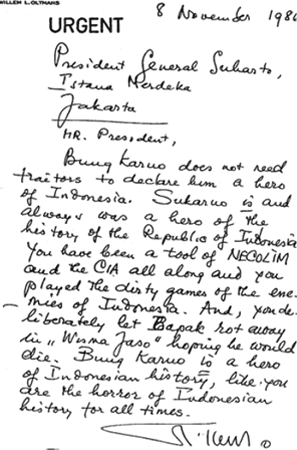 WILLEM L. OLTMANS
8 November 1986
URGENT
President General Suharto,
Istana Merdeka
Jakarta
MR. President,
Bung Karno does not need
traitors to declare him a hero
of Indonesia. Sukarno is and
always was a hero of the
history of the Republic of Indonesia
You have been a tool of NECOLIM
and the CIA all along and you
played the dirty games of the ene-
mies of Indonesia. And, you de-
liberately let Bapak rot away
in „Wisma Jaso" hoping he would
die. Bung Karno is a hero
of Indonesian history, like you
are the horror of Indonesian
history for all times.